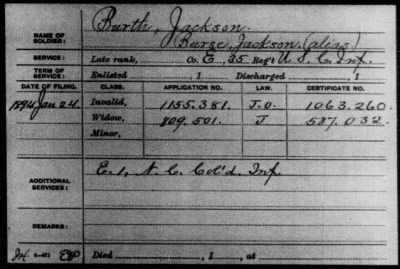 NAME OF SOLDIER: Burth, Jackson.
Burse, Jackson. (alias)
SERVICE: Late rank, Co. E, 35 Reg't U. S. C. Inf.
TERM OF SERVICE: Enlisted , 1 Discharged , 1
DATE OF FILING. CLASS. APPLICATION NO. LAW. CERTIFICATE NO.
1894 Jan 24. Invalid, 1155.381. J.O. 1063.260.
Widow, 809.501. J 587.032.
Minor,
ADDITIONAL SERVICES: E. 1, N. C. Col'd. Inf.
REMARKS:
Died , 1 , at